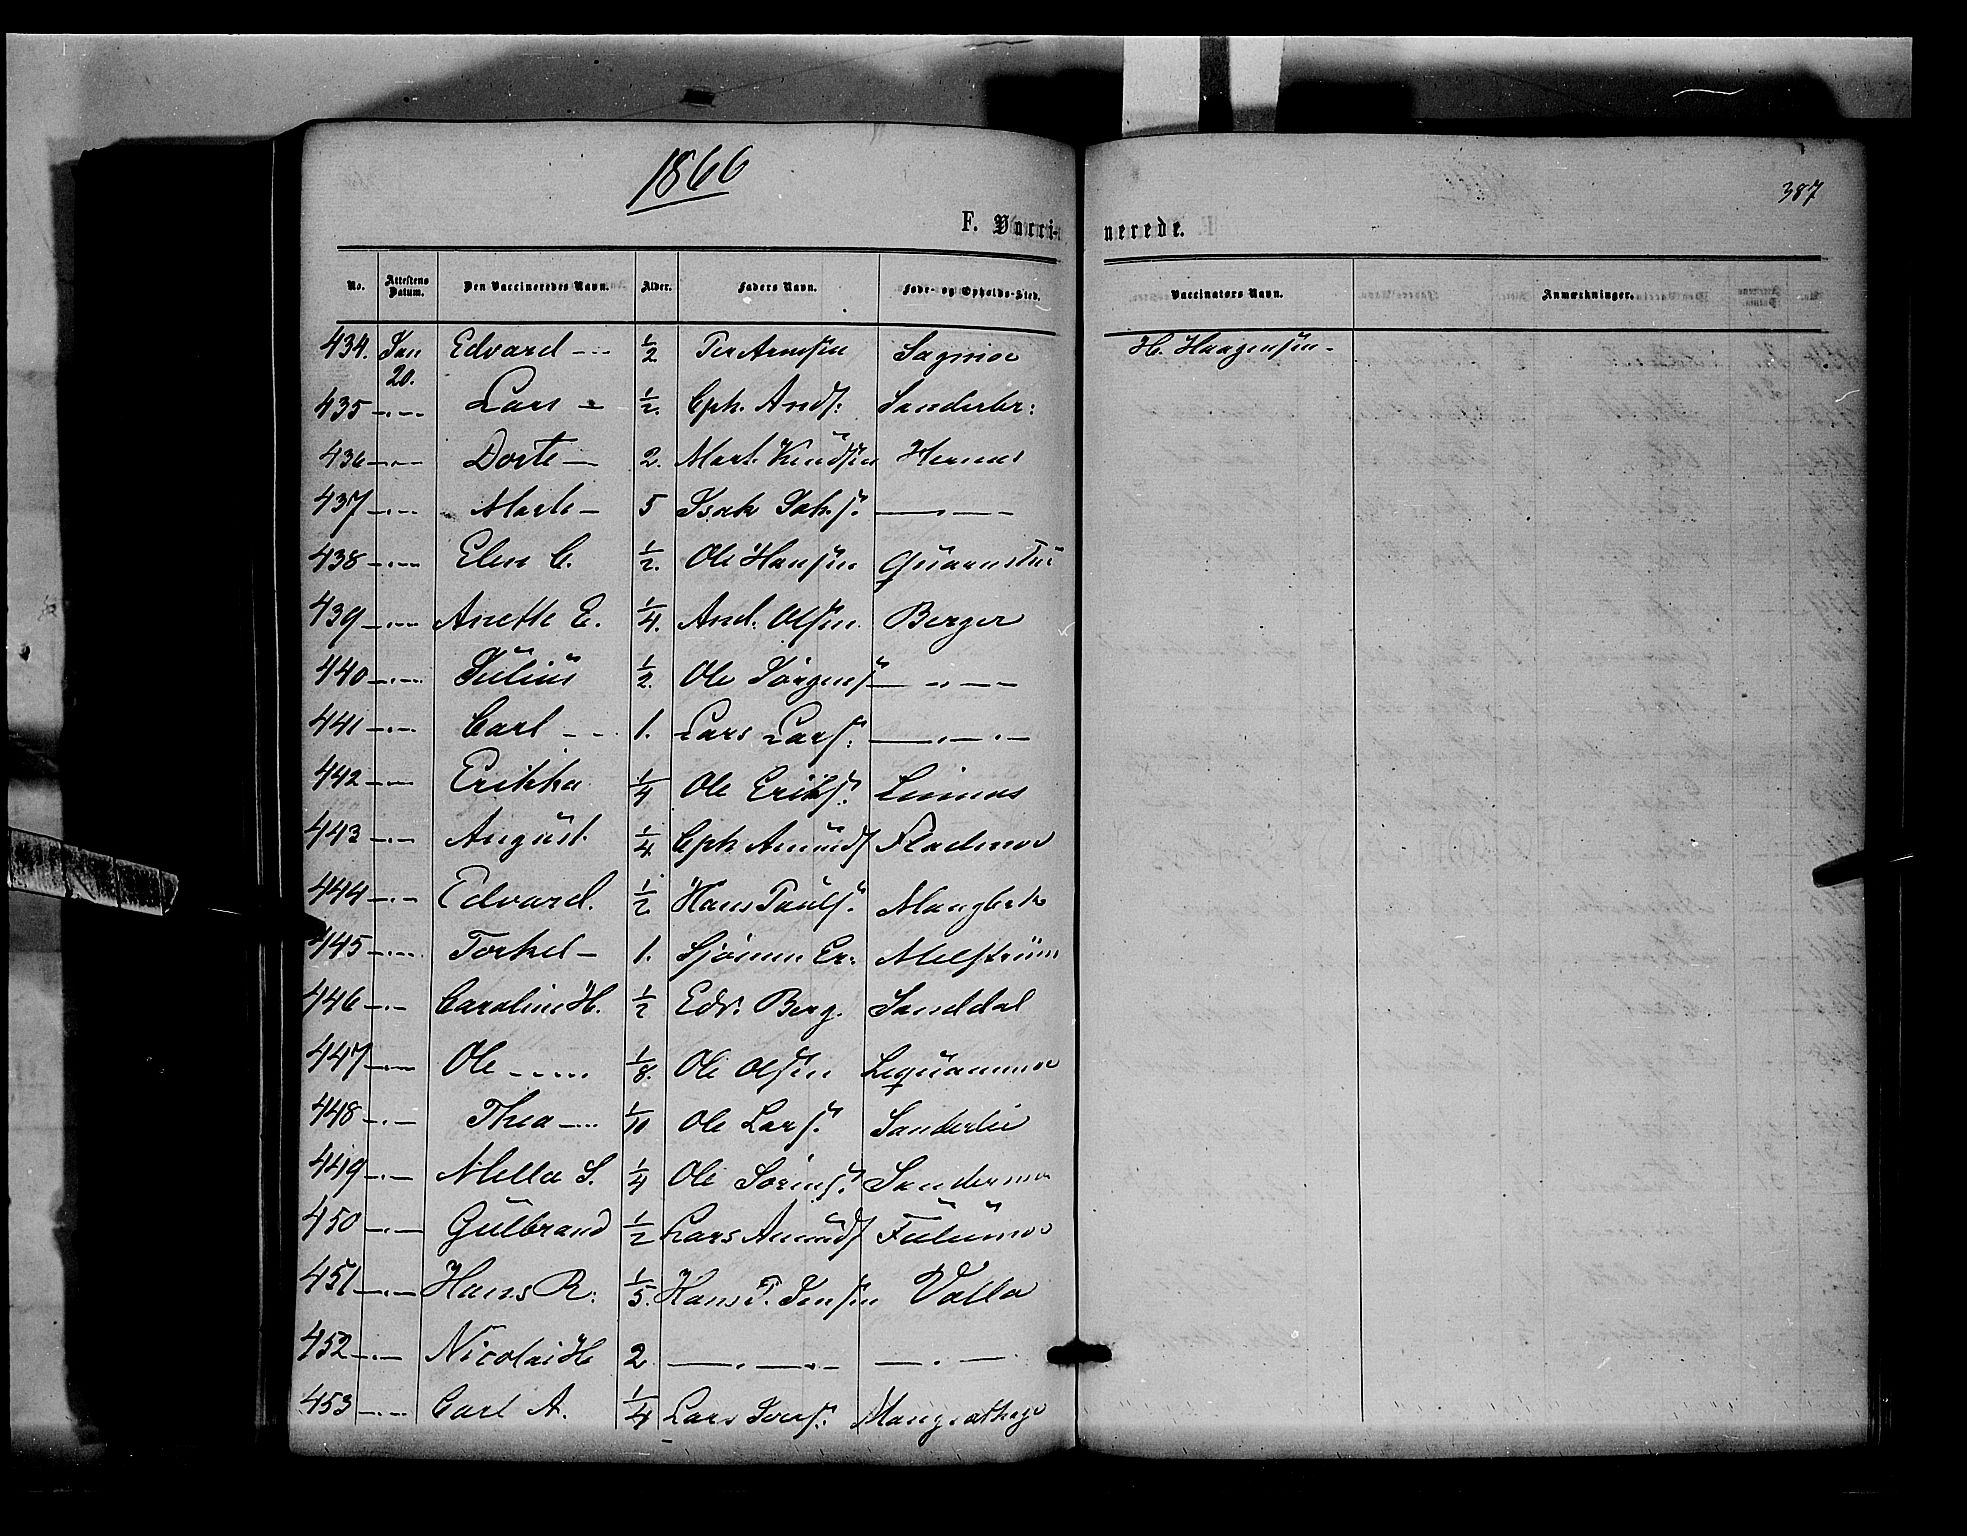 1866
387
F. Vacci-nerede.
No. Attestens Datum. Den Vaccineredes Navn. Alder. Faders Navn. Føde- og Opholds-Sted. Vaccinators Navn. Anmærkninger.
434. Jan 20. Edvard - - - 1/2 Per Arnesen Sagmoe H. Haagensen -
435 - - - Lars - 1/2. Cph. Ands: Sanderbr:
436 - - - Dorte - 2. Mart. Knudsen Hernes
437 - - - Marte - 5 Isak Joh.s. — . —
438 - - - Elen C. 1/2. Ole Hansen
439 - - - Anette E. 1/4. And. Olsen Berger
440 - - - Julius 1/2. Ole Jørgens — . —
441 - - - Carl - - 1. Lars Lars: — . —
442 - - Erikka 1/4 Ole Eriks.
443 - - - August. 1/4 Cph Amunds Flademoe
444 - - - Edvard. 1/2 Hans Pauls.
445 - - - Torkel - 1. Er:
446 - - - Caroline H. 1/2 Edv. Berg. Sanddal
447 - - - Ole - - - - 1/8. Ole Olsen
448 - - - Thea - - - 1/10 Ole Lars.
449 - - - Mella S. 1/4 Ole Sørens. Sandermo
450 - - - Gulbrand 1/2 Lars Amunds
451 - - - Hans R. 1/5. Hans P. Jensen Valla
452 - - - Nicolai H 2. — . — . — — . —
453 - - - Carl A. 1/4 Lars